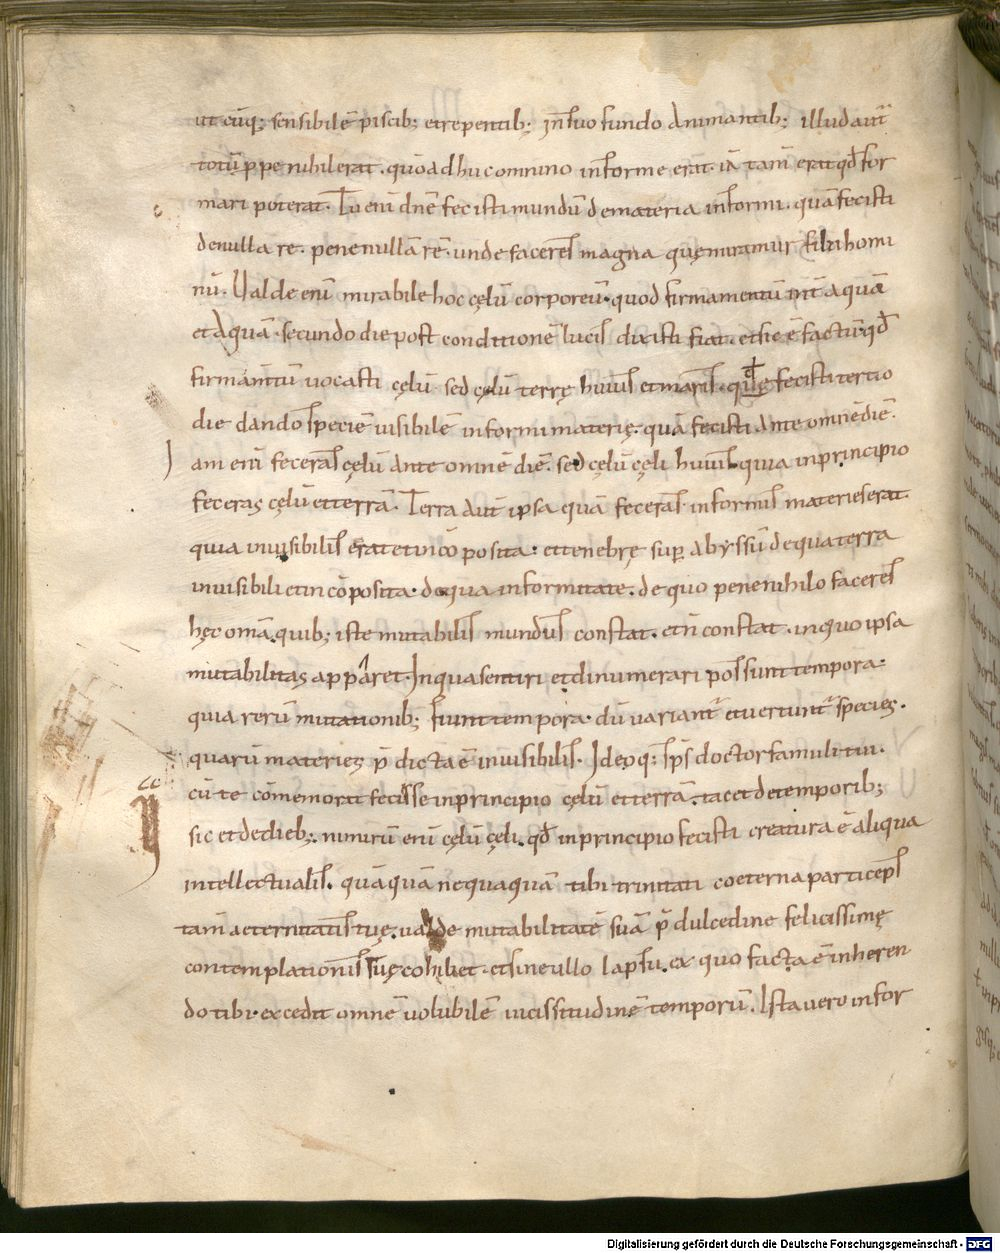 ut cūq; sensibilē piscib; et repentib; in suo fundo animantib; illud aut̄
totū ꝓpe nihil erat. quod adhuc omnino informe erat. iā tam̄ erat qd̄ for
mari poterat. Tu eni dnē fecisti mundū de materia informi. quā fecisti
de nulla re. pene nullā rē. unde faceres magna quę miramur filii homi
nū. Ualde eni mirabile hoc cęlū corporeū. quod firmamentū int̄ aquā
et aquā. secundo die post conditionē lucis dixisti fiat. et sic ē factū. qd̄
firmam̄tū uocasti cęlū sed cęlū terrę huius et maris. quę fecisti tertio
die dando speciē uisibilē informi materię. quā fecisti ante omnē diē.
Iam eni feceras cęlū ante omnē diē. sed cęlū cęli huius quia in principio
feceras cęlū et terrā. Terra aut̄ ipsa quā feceras. informis materies erat.
quia inuisibilis erat et incōposita. et tenebrę suꝑ abyssū de qua terra
inuisibili et incōposita. de qua informitate. de quo pene nihilo faceres
hęc om̄a. quib; iste mutabilis mundus constat. et n̄ constat. in quo ipsa
mutabilitas apparet. In qua sentiri et dinumerari possunt tempora.
quia rerū mutationib; fiunt tempora. dū uariant̄ et uertunt̄ species.
quarū materies p̄dicta ē inuisibilis. Ideoq; sp̄s doctor famuli tui.
cū te cōmemorat fecisse in principio cęlū et terrā. tacet de temporib;
sic et de dieb;. nimirū eni cęlū cęli. qd̄ in principio fecisti creatura ē aliqua
intellectualis. quāquā nequaquā tibi trinitati coeterna particeps
tam̄ aeternitatis tuę. ualde mutabilitatē suā p̄ dulcedine felicissimę
contemplationis suę cohibet. et sine ullo lapsu. ex quo facta ē inheren
do tibi. excedit omnē uolubilē uicissitudinē temporū. Ista uero infor
Digitalisierung gefördert durch die Deutsche Forschungsgemeinschaft - DFG